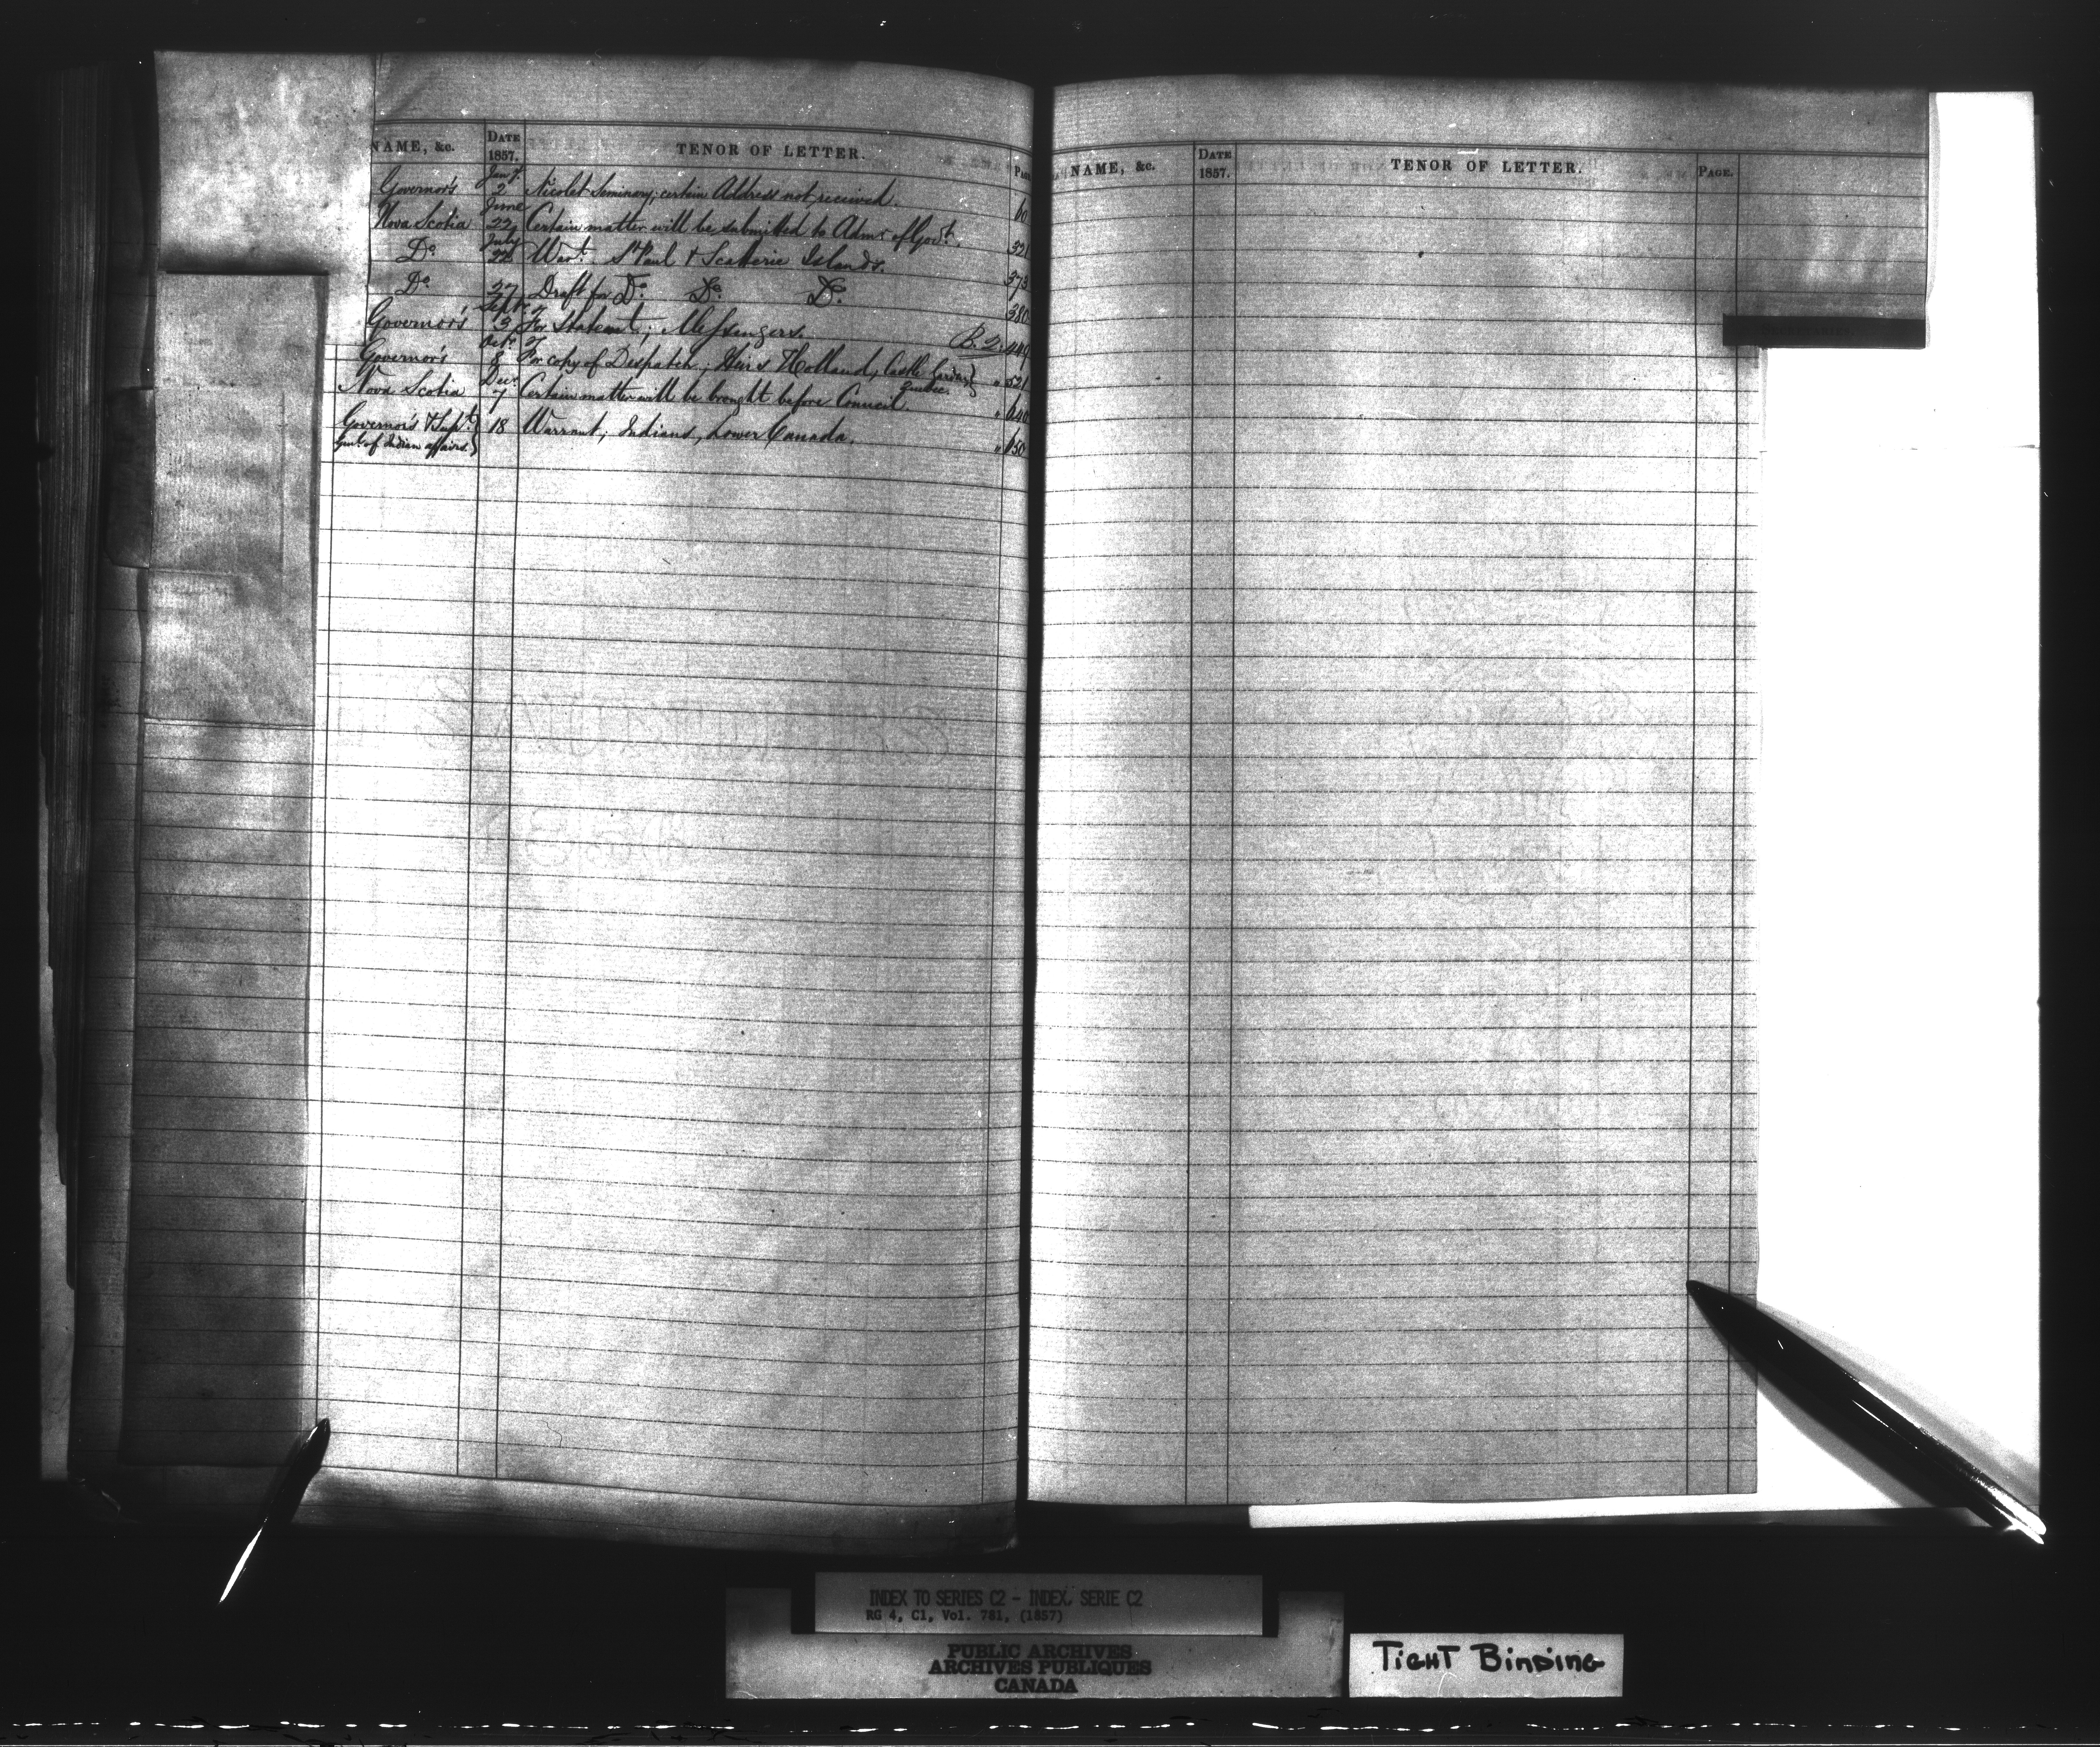 NAME, &c. DATE 1857. TENOR OF LETTER. PAGE
Governor's Jany. 2 Nicolet Seminary; certain Address not received. 60
Nova Scotia June 22 Certain matter will be submitted to Admr of Govt. 321
Do. July 22 Wart. St Paul & Scatterie Islands. 373
Do. 27 Draft for Do. Do. Do. 380
Governor's Septr. 3 For Statemt.; Messengers. B.2. 449
Governor's Octr. 8 For copy of Despatch; Heirs Holland, Castle Garden, Quebec. " 521
Nova Scotia Decr. 7 Certain matter will be brought before Council. " 640
Governor's & Supt. Genl. of Indian affairs. 18 Warrant; Indians, Lower Canada. " 650
NAME, &c. DATE 1857. TENOR OF LETTER. PAGE.
INDEX TO SERIES C2 - INDEX, SERIE C2
RG 4, C1, Vol. 781, (1857)
PUBLIC ARCHIVES
ARCHIVES PUBLIQUES
CANADA
TIGHT BINDING